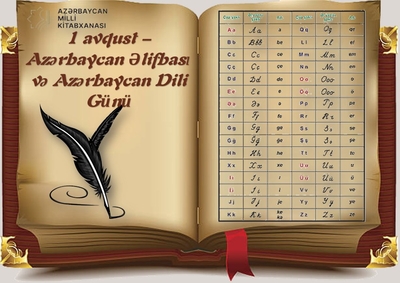 AZƏRBAYCAN
MİLLİ
KİTABXANASI
1 avqust –
Azərbaycan Əlifbası
və Azərbaycan Dili
Günü
Aa Aa a Qq Qq
Bb Bb be Ll Ll el
Cc Cc ce Mm Mm em
Çç Çç çe Nn Nn en
Dd Dd de Oo Oo o
Ee Ee e Öö Öö ö
Əə Əə ə Pp Pp pe
Ff Ff fe Rr Rr er
Gg Gg ge Ss Ss se
Ğğ Ğğ ğe Şş Şş şe
Hh Hh he Tt Tt te
Xx Xx xe Uu Uu u
Iı Iı ı Üü Üü ü
İi İi i Vv Vv ve
Jj Jj je Yy Yy ye
Kk Kk Zz Zz ze